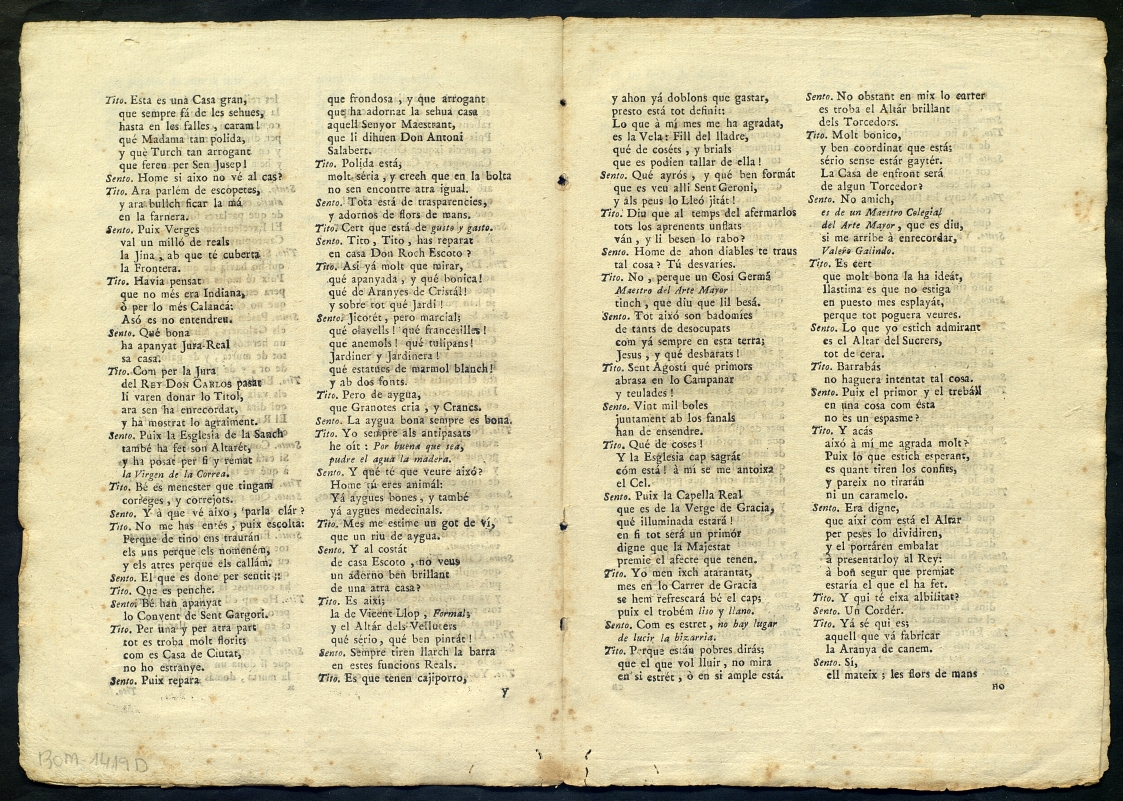 Tito. Esta es una Casa gran,
que sempre fá de les sehues,
hasta en les falles, caram!
qué Madama tan polida,
y qué Turch tan arrogant
que feren per Sen Jusep!
Sento. Home si aixo no vé al cas?
Tito. Ara parlém de escopetes,
y ara bullch ficar la má
en la farnera.
Sento. Puix Verges
val un milló de reals
la Jina, ab que té cuberta
la Frontera.
Tito. Havia pensat
que no més era Indiana,
ò per lo més Calancá:
Asó es no entendreu.
Sento. Qué bona
ha apanyat Jura-Real
sa casa.
Tito. Com per la Jura
del REY DON CARLOS pasat
li varen donar lo Titol,
ara sen ha enrecordat,
y ha mostrat lo agraiment.
Sento. Puix la Esglesia de la Sanch
també ha fet son Altarét,
y ha posat per fi y remat
la Virgen de la Correa.
Tito. Bé es menester que tingam
correges, y correjots.
Sento. Y à que vé aixo, parla clár?
Tito. No me has entés, puix escolta:
Perque de tino ens traurán
els uns perque els nomeném,
y els atres perque els callám.
Sento. El que es done per sentit::
Tito. Que es penche.
Sento. Bé han apanyat
lo Convent de Sent Gargori.
Tito. Per una y per atra part
tot es troba molt florit;
com es Casa de Ciutat,
no ho estranye.
Sento. Puix repara
que frondosa, y que arrogant
que ha adornat la sehua casa
aquell Senyor Maestrant,
que li dihuen Don Antoni
Salabert.
Tito. Polida está;
molt séria, y creeh que en la bolta
no sen encontre atra igual.
Sento. Tota está de trasparencies,
y adornos de flors de mans.
Tito. Cert que está de gusto y gasto.
Sento. Tito, Tito, has reparat
en casa Don Roch Escoto?
Tito. Así yá molt que mirar,
qué apanyada, y qué bonica!
qué de Aranyes de Cristál!
y sobre tot qué Jardí!
Sento. Jicotét, pero marcial;
qué olavells! qué francesilles!
qué anemols! qué tulipans!
Jardiner y Jardinera!
qué estatues de marmol blanch!
y ab dos fonts.
Tito. Pero de aygua,
que Granotes cria, y Crancs.
Sento. La aygua bona sempre es bona.
Tito. Yo sempre als antipasats
he oit: Por buena que sea,
pudre el agua la madera.
Sento. Y qué té que veure aixó?
Home tú eres animál:
Yá aygues bones, y també
yá aygues medecinals.
Tito. Mes me estime un got de ví,
que un riu de aygua.
Sento. Y al costát
de casa Escoto, no veus
un adorno ben brillant
de una atra casa?
Tito. Es aixi;
la de Vicent Llop, Formal;
y el Altár dels Velluters
qué sério, qué ben pintát!
Sento. Sempre tiren llarch la barra
en estes funcions Reals.
Tito. Es que tenen cajiporro,
y
y ahon yá doblons que gastar,
presto está tot definit:
Lo que à mí mes me ha agradat,
es la Vela: Fill del lladre,
qué de coséts, y brials
que es podien tallar de ella!
Sento. Qué ayrós, y qué ben formát
que es veu alli Sent Geroni,
y als peus lo Lleó jitát!
Tito. Diu que al temps del afermarlos
tots los aprenents unflats
ván, y li besen lo rabo?
Sento. Home de ahon diables te traus
tal cosa? Tú desvaries.
Tito. No, perque un Cosí Germá
Maestro del Arte Mayor
tinch, que diu que lil besá.
Sento. Tot aixó son badomies
de tants de desocupats
com yá sempre en esta terra;
Jesus, y qué desbarats!
Tito. Sent Agosti qué primors
abrasa en lo Campanar
y teulades!
Sento. Vint mil boles
juntament ab los fanals
han de ensendre.
Tito. Qué de coses!
Y la Esglesia cap sagrát
cóm está! à mí se me antoixa
el Cel.
Sento. Puix la Capella Real
que es de la Verge de Gracia,
qué illuminada estará!
en fi tot será un primór
digne que la Majestat
premie el afecte que tenen.
Tito. Yo men ixch atarantat,
mes en lo Carrer de Gracia
se hem refrescará bé el cap;
puix el trobém liso y llano.
Sento. Com es estret, no hay lugar
de lucir la bizarria.
Tito. Perque están pobres dirás;
que el que vol lluir, no mira
en si estrét, ò en si ample está.
Sento. No obstant en mix lo carrer
es troba el Altár brillant
dels Torcedors.
Tito. Molt bonico,
y ben coordinat que está;
sério sense estár gaytér.
La Casa de enfront será
de algun Torcedor?
Sento. No amich,
es de un Maestro Colegial
del Arte Mayor, que es diu,
si me arribe à enrecordar,
Valero Galindo.
Tito. Es cert
que molt bona la ha ideát,
llastima es que no estiga
en puesto mes esplayát,
perque tot poguera veures.
Sento. Lo que yo estich admirant
es el Altar del Sucrers,
tot de cera.
Tito. Barrabás
no haguera intentat tal cosa.
Sento. Puix el primor y el trebáll
en una cosa com ésta
no es un espasme?
Tito. Y acás
aixó à mí me agrada molt?
Puix lo que estich esperant,
es quant tiren los confits,
y pareix no tirarán
ni un caramelo.
Sento. Era digne,
que aixi com está el Altar
per peses lo dividiren,
y el portáren embalat
à presentarloy al Rey:
à bon segur que premiat
estaria el que el ha fet.
Tito. Y qui té eixa albilitat?
Sento. Un Cordér.
Tito. Yá sé qui es;
aquell que vá fabricar
la Aranya de canem.
Sento. Si,
ell mateix; les flors de mans
no
BOM-1419D